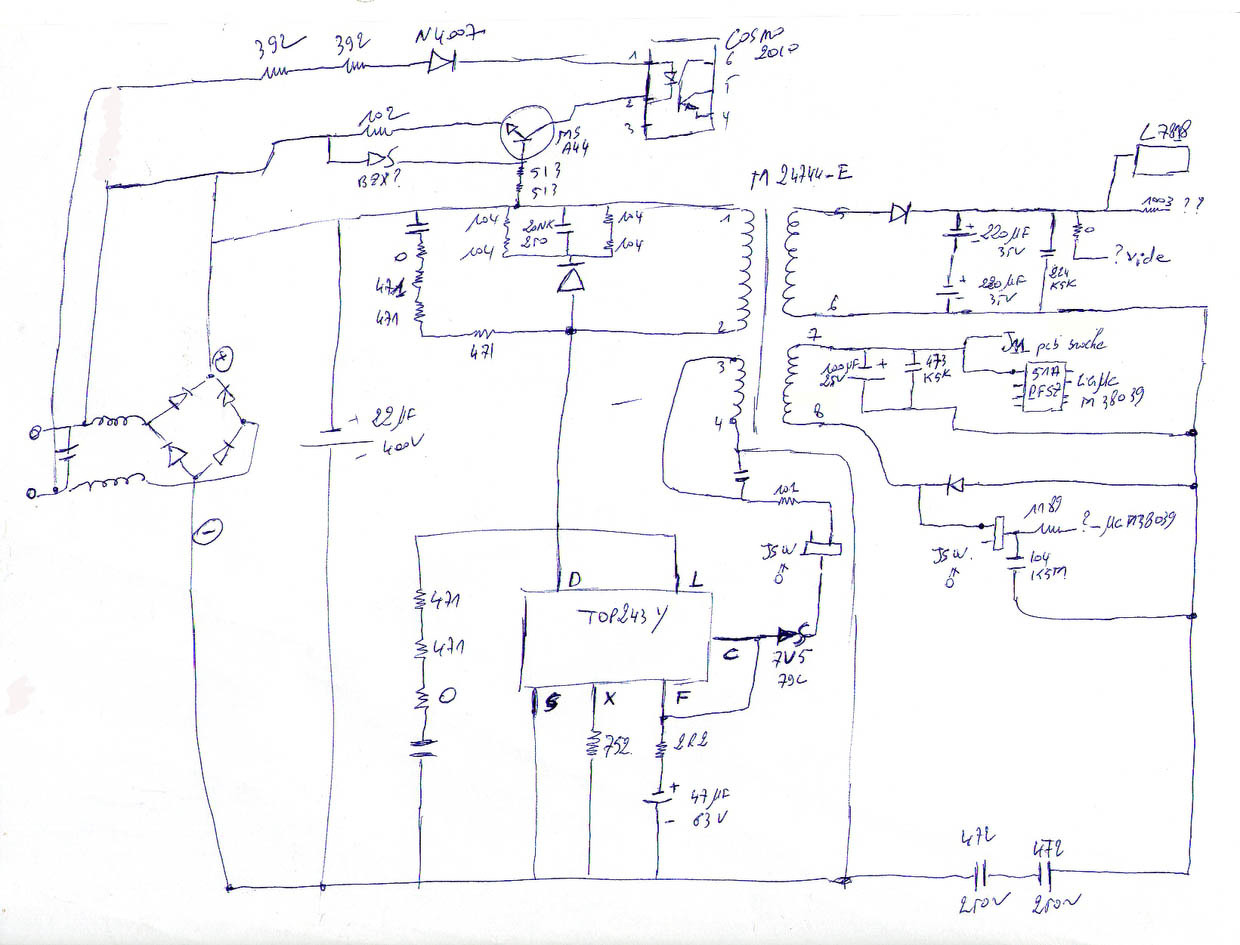 392
392
N4007
COSMO
2010
1
2
3
6
5
4
102
MS
A44
BZX?
513
513
M 24744-E
L7818
1003 ??
104
104
20NK
250
104
104
1
2
5
6
+
220µF
35V
+
220µF
35V
224
K5K
0
? vide
0
471
471
471
+
22µF
400V
+
-
3
4
7
8
100µF
25V
+
473
K5K
JM pcb broche
51A
PFSZ
M38039
101
JSW.
JSW.
1189
? - µc M38039
104
K5M
D
L
TOP243 Y
C
S
X
F
7V5
79C
471
471
0
752
2R2
+
47µF
- 63V
472
250V
472
250V